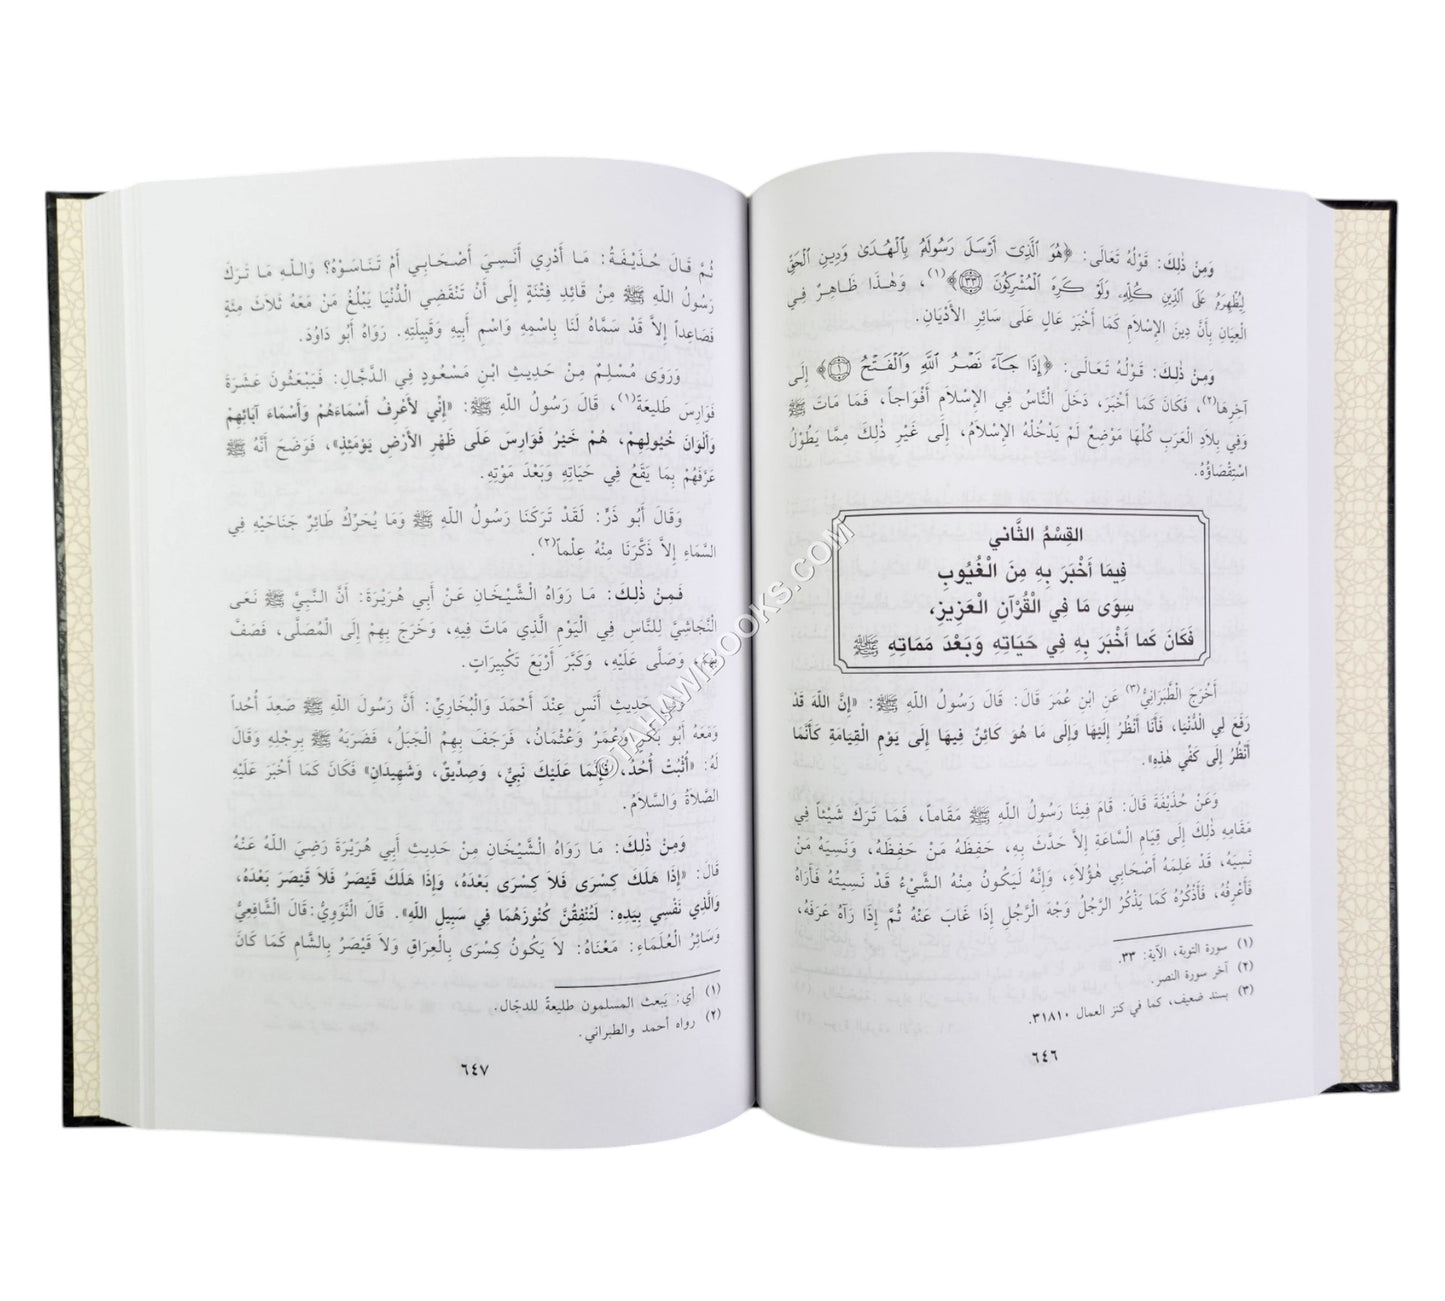 وَمِنْ ذٰلِكَ: قَوْلُهُ تَعَالَى: ﴿هُوَ ٱلَّذِىٓ أَرْسَلَ رَسُولَهُۥ بِٱلْهُدَىٰ وَدِينِ ٱلْحَقِّ
لِيُظْهِرَهُۥ عَلَى ٱلدِّينِ كُلِّهِۦ وَلَوْ كَرِهَ ٱلْمُشْرِكُونَ ٣٣﴾(١)، وَهٰذَا ظَاهِرٌ فِي
الْعِيَانِ بِأَنَّ دِينَ الإِسْلاَمِ كَمَا أَخْبَرَ عَالٍ عَلَى سَائِرِ الأَدْيَانِ.
وَمِنْ ذٰلِكَ: قَوْلُهُ تَعَالَى: ﴿إِذَا جَآءَ نَصْرُ ٱللَّهِ وَٱلْفَتْحُ ١﴾ إِلَى
آخِرِهَا(٢)، فَكَانَ كَمَا أَخْبَرَ، دَخَلَ النَّاسُ فِي الإِسْلاَمِ أَفْوَاجاً، فَمَا مَاتَ ﷺ
وَفِي بِلاَدِ الْعَرَبِ كُلِّهَا مَوْضِعٌ لَمْ يَدْخُلْهُ الإِسْلاَمُ، إِلَى غَيْرِ ذٰلِكَ مِمَّا يَطُولُ
اسْتِقْصَاؤُهُ.
القِسْمُ الثَّاني
فِيمَا أَخْبَرَ بِهِ مِنَ الْغُيُوبِ
سِوَى مَا فِي الْقُرْآنِ الْعَزِيزِ،
فَكَانَ كَما أَخْبَرَ بِهِ فِي حَيَاتِهِ وَبَعْدَ مَمَاتِهِ ﷺ
أَخْرَجَ الطَّبَرَانِيُّ(٣) عَنِ ابْنِ عُمَرَ قَالَ: قَالَ رَسُولُ اللهِ ﷺ: «إِنَّ اللهَ قَدْ
رَفَعَ لِي الدُّنْيَا، فَأَنَا أَنْظُرُ إِلَيْهَا وَإِلَى مَا هُوَ كَائِنٌ فِيهَا إِلَى يَوْمِ الْقِيَامَةِ كَأَنَّمَا
أَنْظُرُ إِلَى كَفِّي هٰذِهِ».
وَعَنْ حُذَيْفَةَ قَالَ: قَامَ فِينَا رَسُولُ اللهِ ﷺ مَقَاماً، فَمَا تَرَكَ شَيْئاً فِي
مَقَامِهِ ذٰلِكَ إِلَى قِيَامِ السَّاعَةِ إِلاَّ حَدَّثَ بِهِ، حَفِظَهُ مَنْ حَفِظَهُ، وَنَسِيَهُ مَنْ
نَسِيَهُ، قَدْ عَلِمَهُ أَصْحَابِي هٰؤُلاَءِ، وَإِنَّهُ لَيَكُونُ مِنْهُ الشَّيْءُ قَدْ نَسِيتُهُ فَأَرَاهُ
فَأَعْرِفُهُ، فَأَذْكُرُهُ كَمَا يَذْكُرُ الرَّجُلُ وَجْهَ الرَّجُلِ إِذَا غَابَ عَنْهُ ثُمَّ إِذَا رَآهُ عَرَفَهُ،
(١) سورة التوبة، الآية: ٣٣.
(٢) آخر سورة النصر.
(٣) بسند ضعيف، كما في كنز العمال ٣١٨١٠.
٦٤٦
ثُمَّ قَالَ حُذَيْفَةُ: مَا أَدْرِي أَنَسِيَ أَصْحَابِي أَمْ تَنَاسَوْهُ؟ وَاللهِ مَا تَرَكَ
رَسُولُ اللهِ ﷺ مِنْ قَائِدِ فِتْنَةٍ إِلَى أَنْ تَنْقَضِي الدُّنْيَا يَبْلُغُ مَنْ مَعَهُ ثَلاَثَ مِئَةٍ
فَصَاعِداً إِلاَّ قَدْ سَمَّاهُ لَنَا بِاسْمِهِ وَاسْمِ أَبِيهِ وَقَبِيلَتِهِ. رَوَاهُ أَبُو دَاوُدَ.
وَرَوَى مُسْلِمٌ مِنْ حَدِيثِ ابْنِ مَسْعُودٍ فِي الدَّجَّالِ: فَيَبْعَثُونَ عَشَرَةَ
فَوَارِسَ طَلِيعَةً(١)، قَالَ رَسُولُ اللهِ ﷺ: «إِنِّي لأَعْرِفُ أَسْمَاءَهُمْ وَأَسْمَاءَ آبَائِهِمْ
وَأَلْوَانَ خُيُولِهِمْ، هُمْ خَيْرُ فَوَارِسَ عَلَى ظَهْرِ الأَرْضِ يَوْمَئِذٍ»، فَوَضَحَ أَنَّهُ ﷺ
عَرَّفَهُمْ بِمَا يَقَعُ فِي حَيَاتِهِ وَبَعْدَ مَوْتِهِ.
وَقَالَ أَبُو ذَرٍّ: لَقَدْ تَرَكَنَا رَسُولُ اللهِ ﷺ وَمَا يُحَرِّكُ طَائِرٌ جَنَاحَيْهِ فِي
السَّمَاءِ إِلاَّ ذَكَّرَنَا مِنْهُ عِلْماً(٢).
فَمِنْ ذٰلِكَ: مَا رَوَاهُ الشَّيْخَانِ عَنْ أَبِي هُرَيْرَةَ: أَنَّ النَّبِيَّ ﷺ نَعَى
النَّجَاشِيَّ لِلنَّاسِ فِي الْيَوْمِ الَّذِي مَاتَ فِيهِ، وَخَرَجَ بِهِمْ إِلَى الْمُصَلَّى، فَصَفَّ
بِهِمْ، وَصَلَّى عَلَيْهِ، وَكَبَّرَ أَرْبَعَ تَكْبِيرَاتٍ.
وَفِي حَدِيثِ أَنَسٍ عِنْدَ أَحْمَدَ وَالْبُخَارِيِّ: أَنَّ رَسُولَ اللهِ ﷺ صَعِدَ أُحُداً
وَمَعَهُ أَبُو بَكْرٍ وَعُمَرُ وَعُثْمَانُ، فَرَجَفَ بِهِمُ الْجَبَلُ، فَضَرَبَهُ ﷺ بِرِجْلِهِ وَقَالَ
لَهُ: «أُثْبُتْ أُحُدُ، فَإِنَّمَا عَلَيْكَ نَبِيٌّ، وَصِدِّيقٌ، وَشَهِيدَانِ» فَكَانَ كَمَا أَخْبَرَ عَلَيْهِ
الصَّلاَةُ وَالسَّلاَمُ.
وَمِنْ ذٰلِكَ: مَا رَوَاهُ الشَّيْخَانِ مِنْ حَدِيثِ أَبِي هُرَيْرَةَ رَضِيَ اللهُ عَنْهُ
قَالَ: «إِذَا هَلَكَ كِسْرَى فَلاَ كِسْرَى بَعْدَهُ، وَإِذَا هَلَكَ قَيْصَرُ فَلاَ قَيْصَرَ بَعْدَهُ،
وَالَّذِي نَفْسِي بِيَدِهِ: لَتُنْفِقُنَّ كُنُوزَهُمَا فِي سَبِيلِ اللهِ». قَالَ النَّوَوِيُّ: قَالَ الشَّافِعِيُّ
وَسَائِرُ الْعُلَمَاءِ: مَعْنَاهُ: لاَ يَكُونُ كِسْرَى بِالْعِرَاقِ وَلاَ قَيْصَرُ بِالشَّامِ كَمَا كَانَ
(١) أي: يَبعث المسلمون طليعةً للدجّال.
(٢) رواه أحمد والطبراني.
٦٤٧
©TAHAWIBOOKS.COM